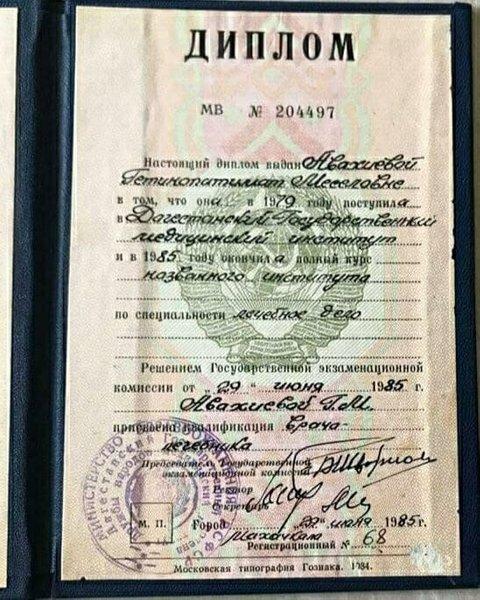 ДИПЛОМ
МВ № 204497
Настоящий диплом выдан Авахиевой
Меселовне
в том, что она в 1979 году поступила
в Дагестанский Государственный
медицинский институт
и в 1985 году окончила полный курс
названного института
по специальности лечебное дело
Решением Государственной экзаменационной
комиссии от „29“ июня 1985 г.
Авахиевой Г.М.
присвоена квалификация врача-
лечебника
Председатель Государственной
экзаменационной комиссии
Ректор
Секретарь
М. П.
Город Махачкала „29“ июня 1985 г.
Регистрационный № 68
Московская типография Гознака. 1984.
МИНИСТЕРСТВО